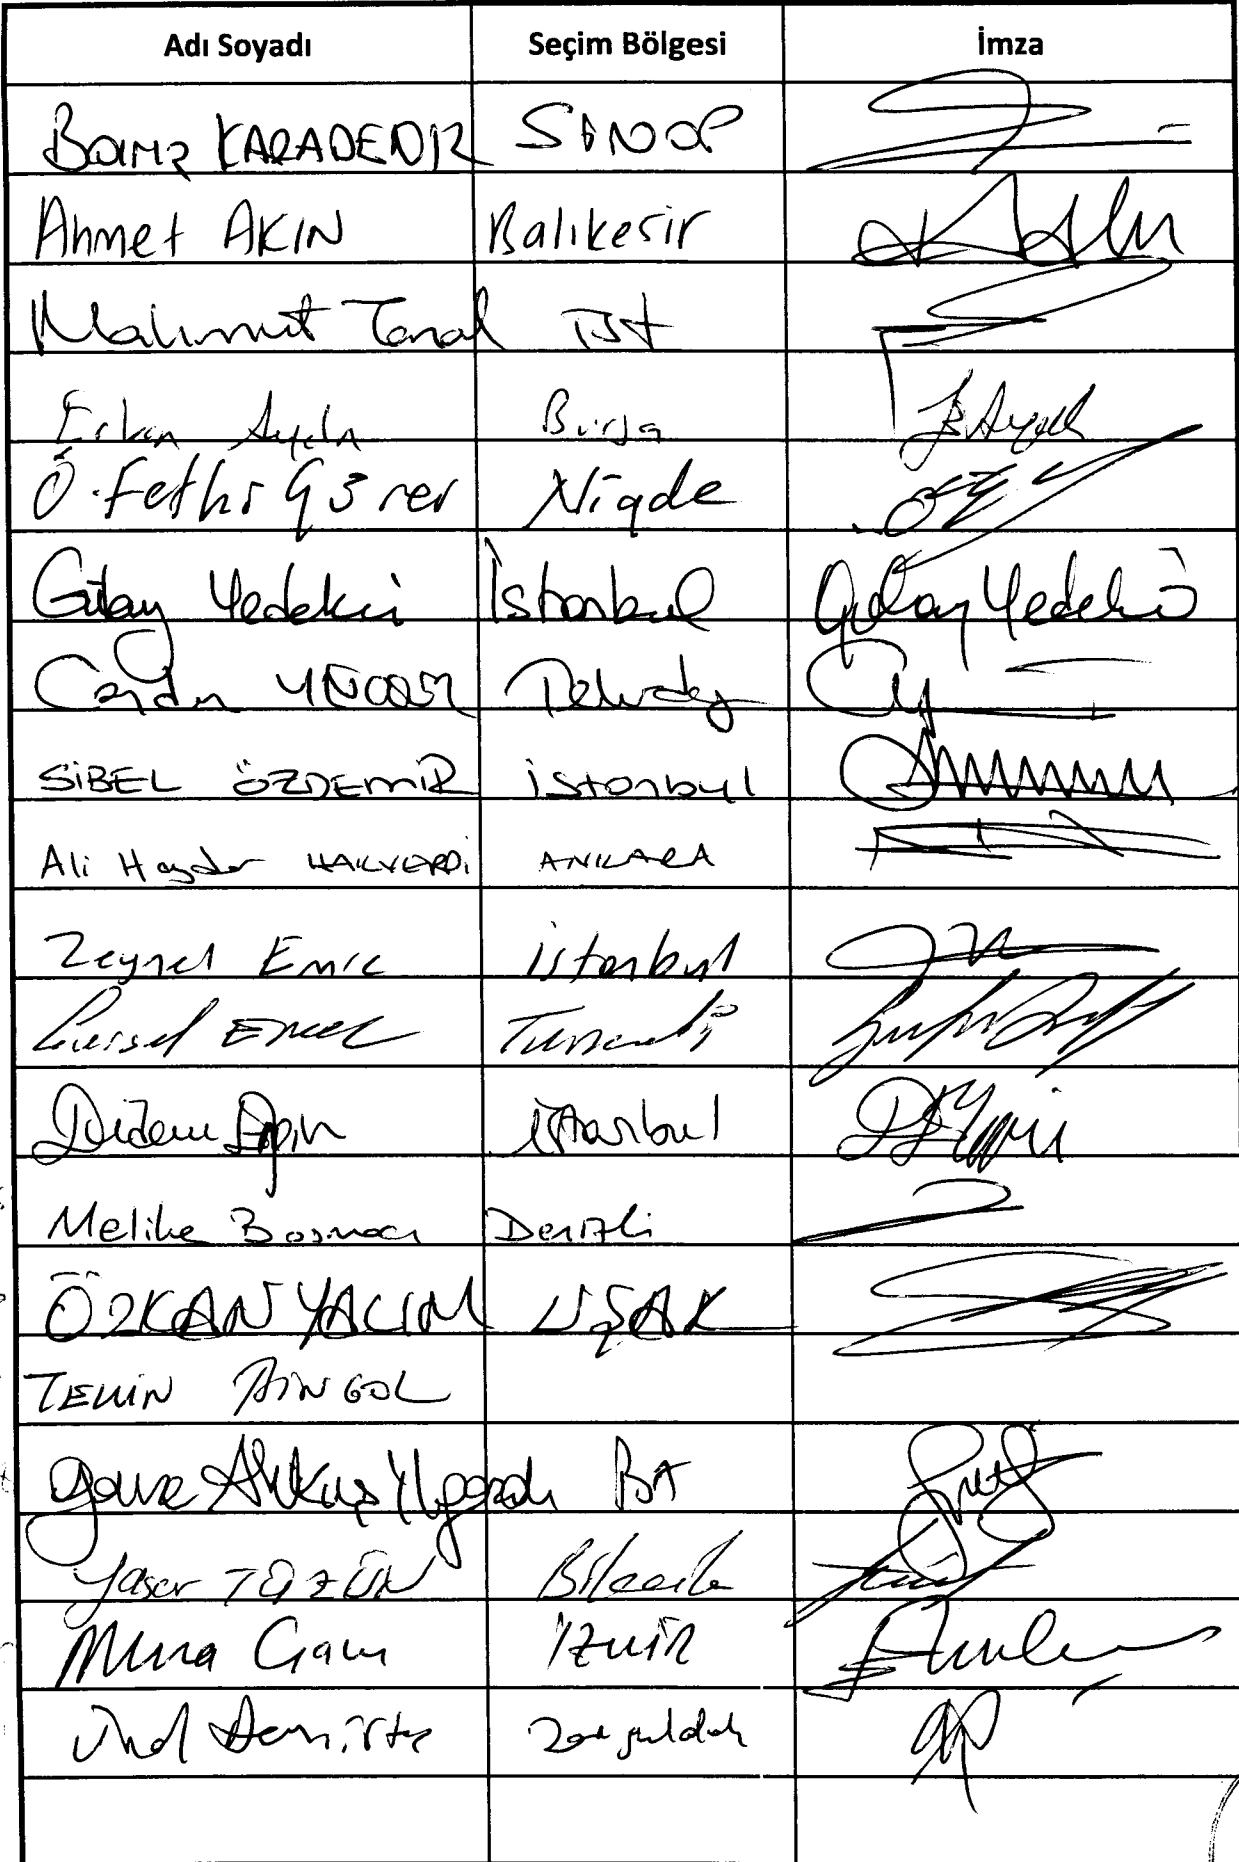 Adı Soyadı Seçim Bölgesi İmza
Barış KARADENİZ SİNOP
Ahmet AKIN Balıkesir
Mahmut Tanal İST
Erkan Aydın Bursa
Ö. Fethi Gürer Niğde
Gülay Yedekci İstanbul Gülay Yedekci
Candan YÜCEER Tekirdağ
SİBEL ÖZDEMİR İstanbul
Ali Haydar HAKVERDİ ANKARA
Zeynel Emre İstanbul
Gürsel EROL Tunceli
Didem Engin İstanbul
Melike Basmacı Denizli
ÖZKAN YALIM UŞAK
TEKİN BİNGÖL
Gamze Akkuş İlgezdi İST
Yaşar TÜZÜN Bilecik
Musa Çam İZMİR
Ünal Demirtaş Zonguldak